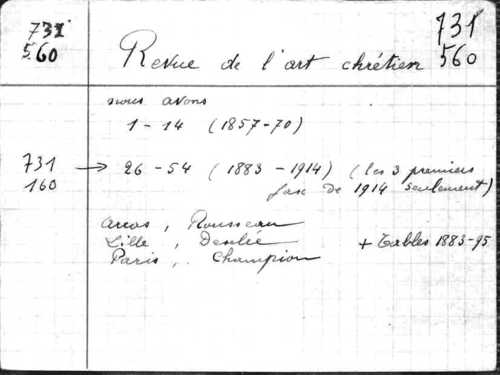 731
560
731
560
Revue de l'art chrétien
nous avons
1-14 (1857-70)
731
160
→ 26-54 (1883-1914) (les 3 premiers
fasc de 1914 seulement)
Arras, Rousseau
Lille, Desclée
+ Tables 1883-95
Paris, Champion